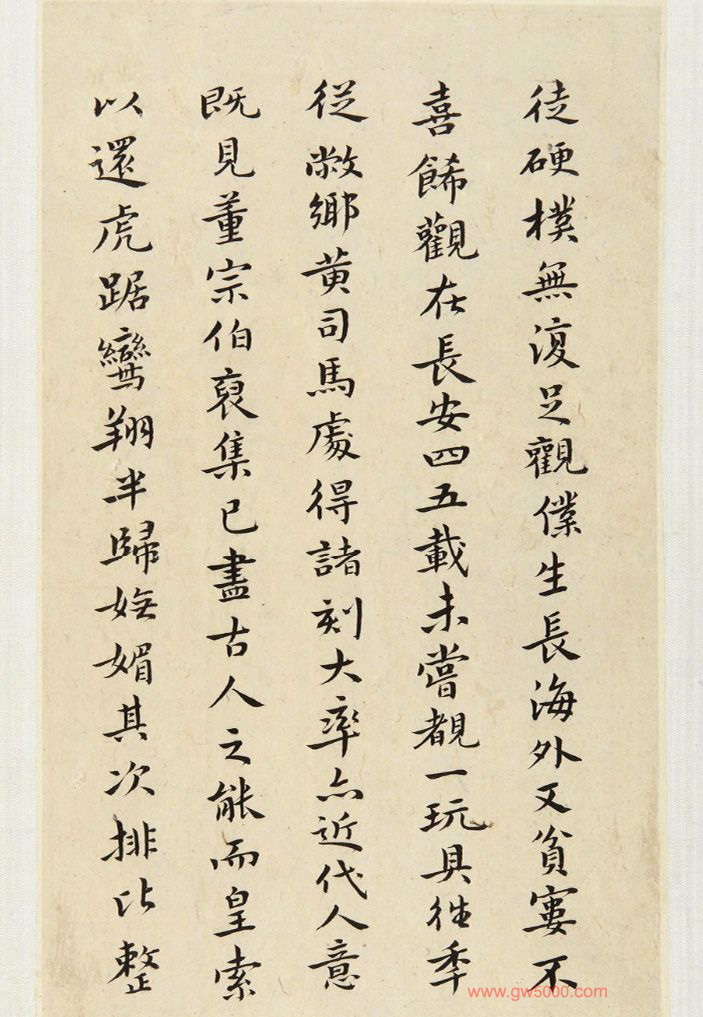 徒硬樸無復足觀僕生長海外又貧窶不
喜餙觀在長安四五載未嘗覩一玩具往季
從敝鄉黄司馬處得諸刻大率亦近代人意
既見董宗伯裒集已盡古人之能而皇索
以還虎踞鸞翔半歸娬媚其次排比整
www.gw5000.com